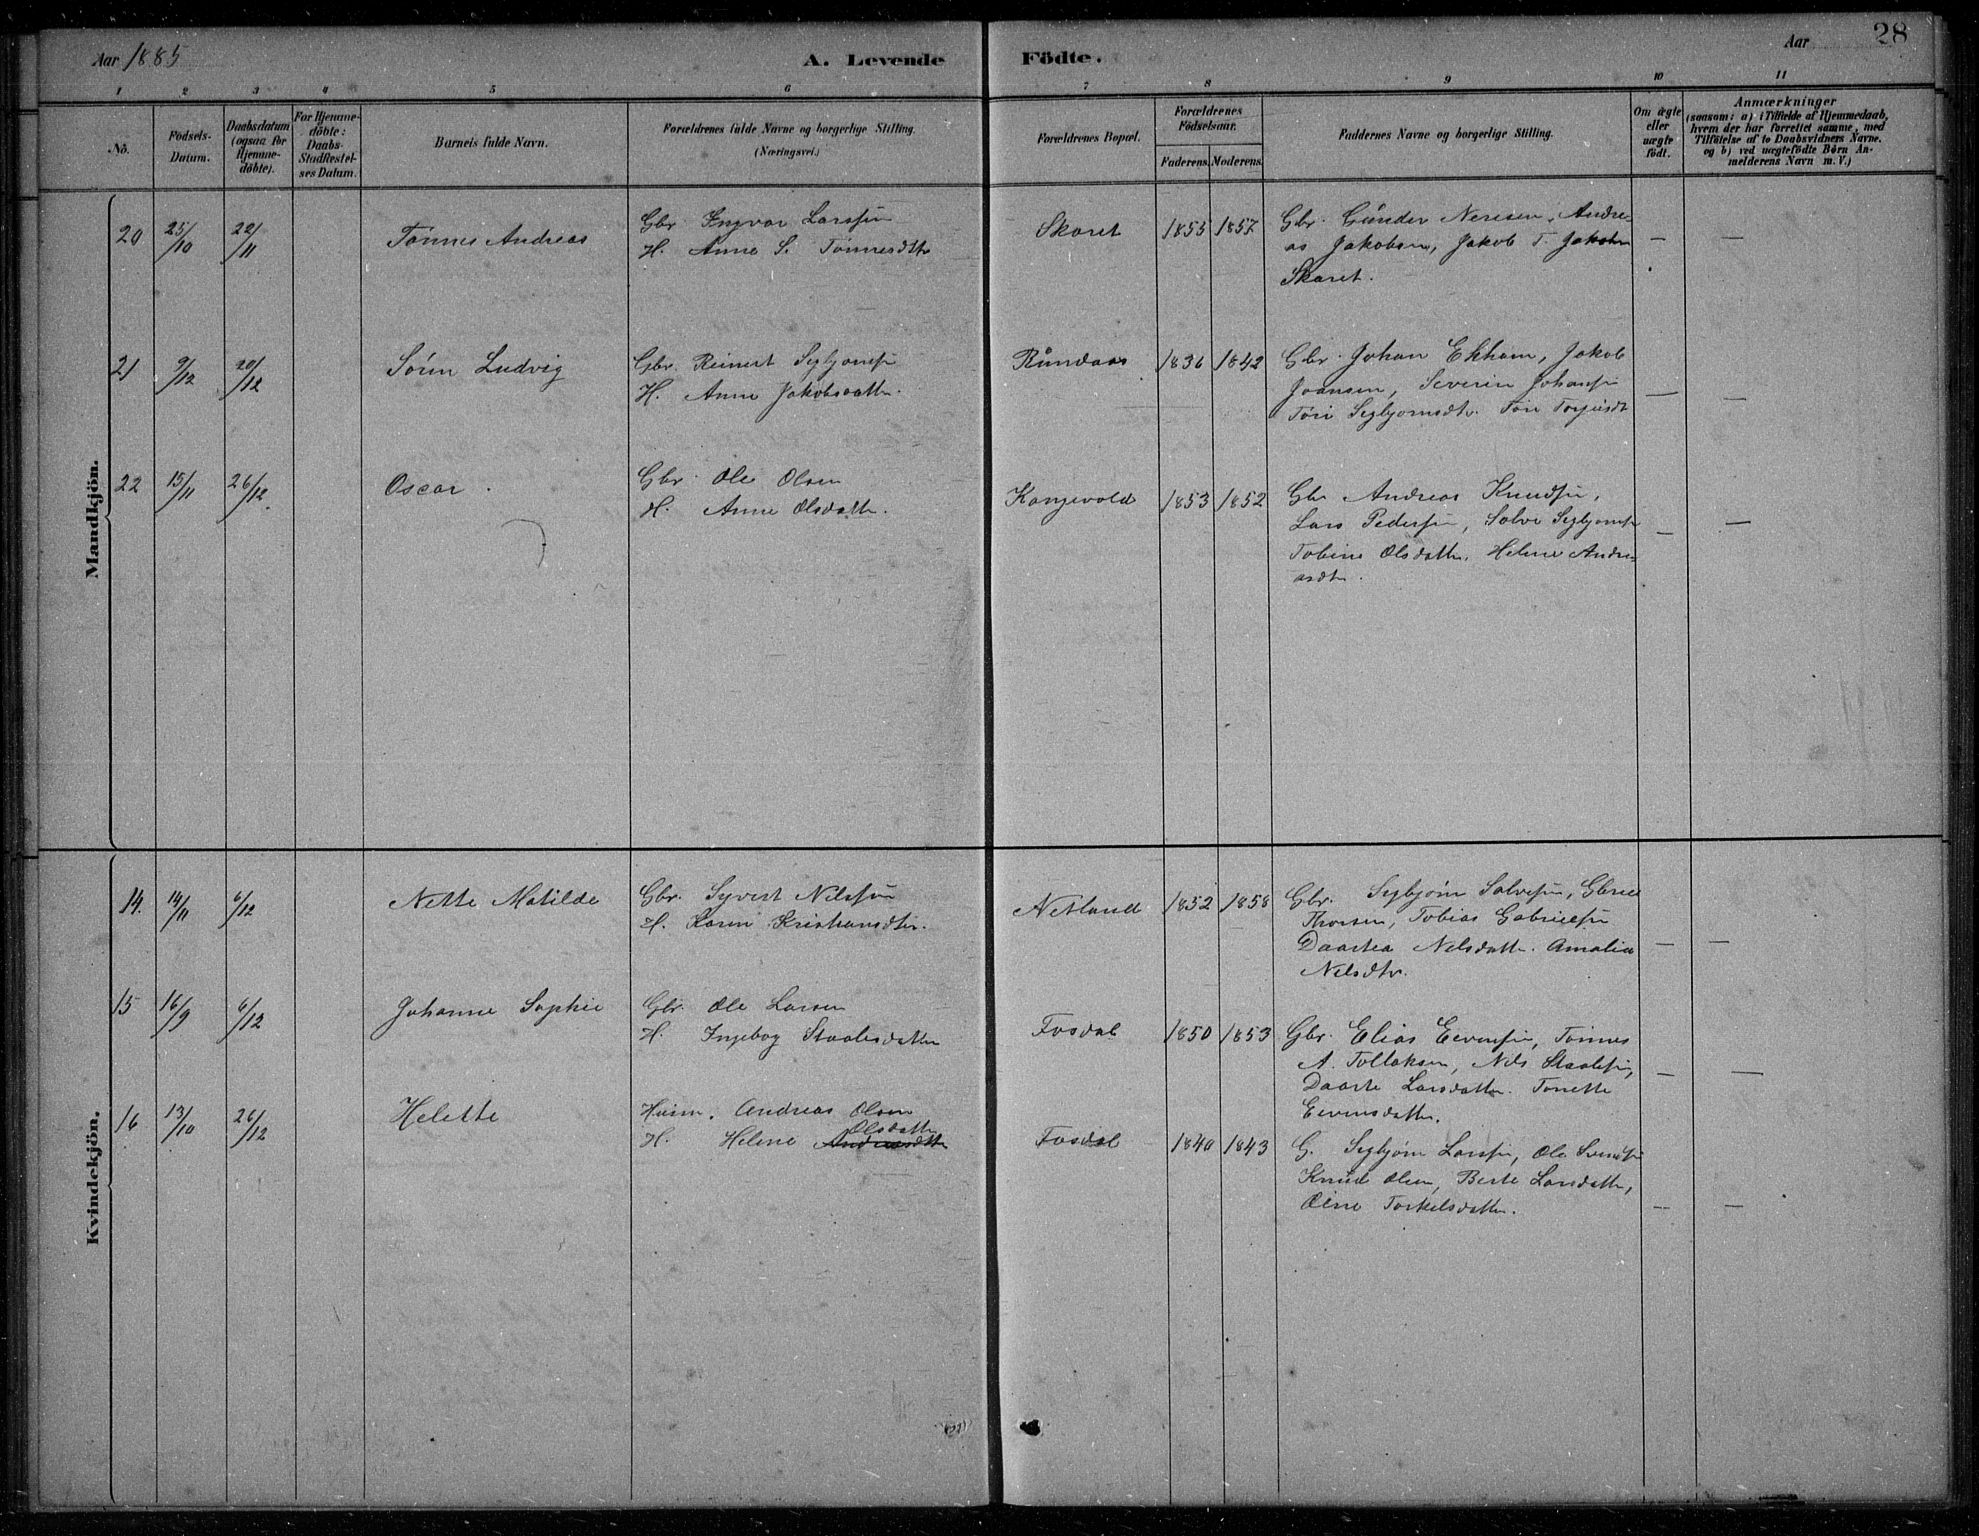 Aar 1885
A. Levende
Födte.
Aar
28
1 2 3 4 5 6 7 8 9 10 11
Nö.
Födsels-
Datum.
Daabsdatum
(ogsaa for
Hjemme-
döbte).
For Hjemme-
döbte:
Daabs-
Stadfæstel-
ses Datum.
Barnets fulde Navn.
Forældrenes fulde Navne og borgerlige Stilling.
(Næringsvei.)
Forældrenes Bopæl.
Forældrenes
Födselsaar.
Faderens. Moderens.
Faddernes Navne og borgerlige Stilling.
Om ægte
eller
uægte
födt.
Anmærkninger
(saasom: a) i Tilfælde af Hjemmedaab,
hvem der har forrettet samme, med
Tilföielse af to Daabsvidners Navne,
og b) ved uægtefödte Börn An-
melderens Navn m. V.)
Mandkjön.
20 25/10 22/11 Tønnes Andreas
Gbr. Ingvar Larssen
H. Anne S. Tønnesdtr
Skaret 1855 1857
Gbr. Gunder Neresen, Andre-
as Jakobsen, Jakob T. Jakobsen
Skaret. — —
21 9/12 20/12 Sørin Ludvig
Gbr. Reinert Segbjørnsen
H. Anne Jakobsdatter.
Rundaas 1836 1842
Gbr. Johan Ekham, Jakob
Joansen, Severin Johansen
Tøri Segbjørnsdtr. Tøri Torjusdt — —
22 15/11 26/12. Oscar.
Gbr. Ole Olsen
H. Anne Olsdatter.
Kongevold 1853 1852
Gbr Andreas Knudsen,
Lars Pedersen, Salve Segbjørnsen
Tobine Olsdatter, Helene Andre-
asdtr. — —
Kvindekjön.
14. 14/11 6/12 Nette Matilde
Gbr. Syvert Nilssen
H. Karen Kristiansdtr.
Netland 1852 1858
Gbr. Segbjørn Salvesen, Gbriel
Thorsen, Tobias Gabrielsen
Daartea Nelsdatter. Amalia
Nelsdtr. — —
15 16/9 6/12 Johanne Sophie
Gbr. Ole Larsen
H. Ingebog Staalesdatter
Fosdal 1850 1853
Gbr. Elias Eevensen, Tønnes
A. Tollaksen, Nils Staalesen,
Daarte Larsdatter. Tonette
Eivensdatter. — —
16 13/10 26/12 Helette
Husm. Andreas Olsen
Olsdatter
H. Helene Andreasdtr
Fosdal 1840 1843
G. Segbjørn Larsen, Ole Svendsen
Knud Olsen, Berte Larsdatter,
Oline Torkelsdatter. — —